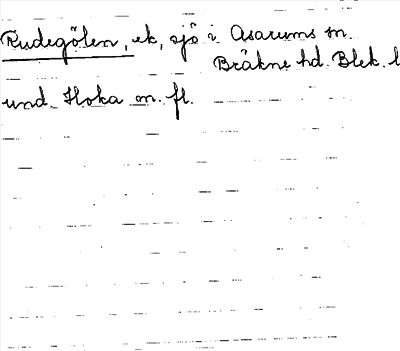 Rudegölen, ek, sjö i Asarums sn.
Bräkne hd. Blek. l
und. Hoka m. fl.